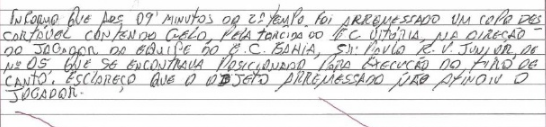 INFORMO QUE AOS 09 MINUTOS DO 2º TEMPO, FOI ARREMESSADO UM COPO DES
CARTÁVEL CONTENDO GELO, PELA TORCIDA DO EC VITÓRIA, NA DIREÇÃO
DO JOGADOR DA EQUIPE DO E.C. BAHIA, SR. PAULO R. V. JUNIOR, DE
Nº 05 QUE SE ENCONTRAVA POSICIONADO PARA EXECUÇÃO DO TIRO DE
CANTO. ESCLAREÇO QUE O OBJETO ARREMESSADO NÃO ATINGIU O
JOGADOR.